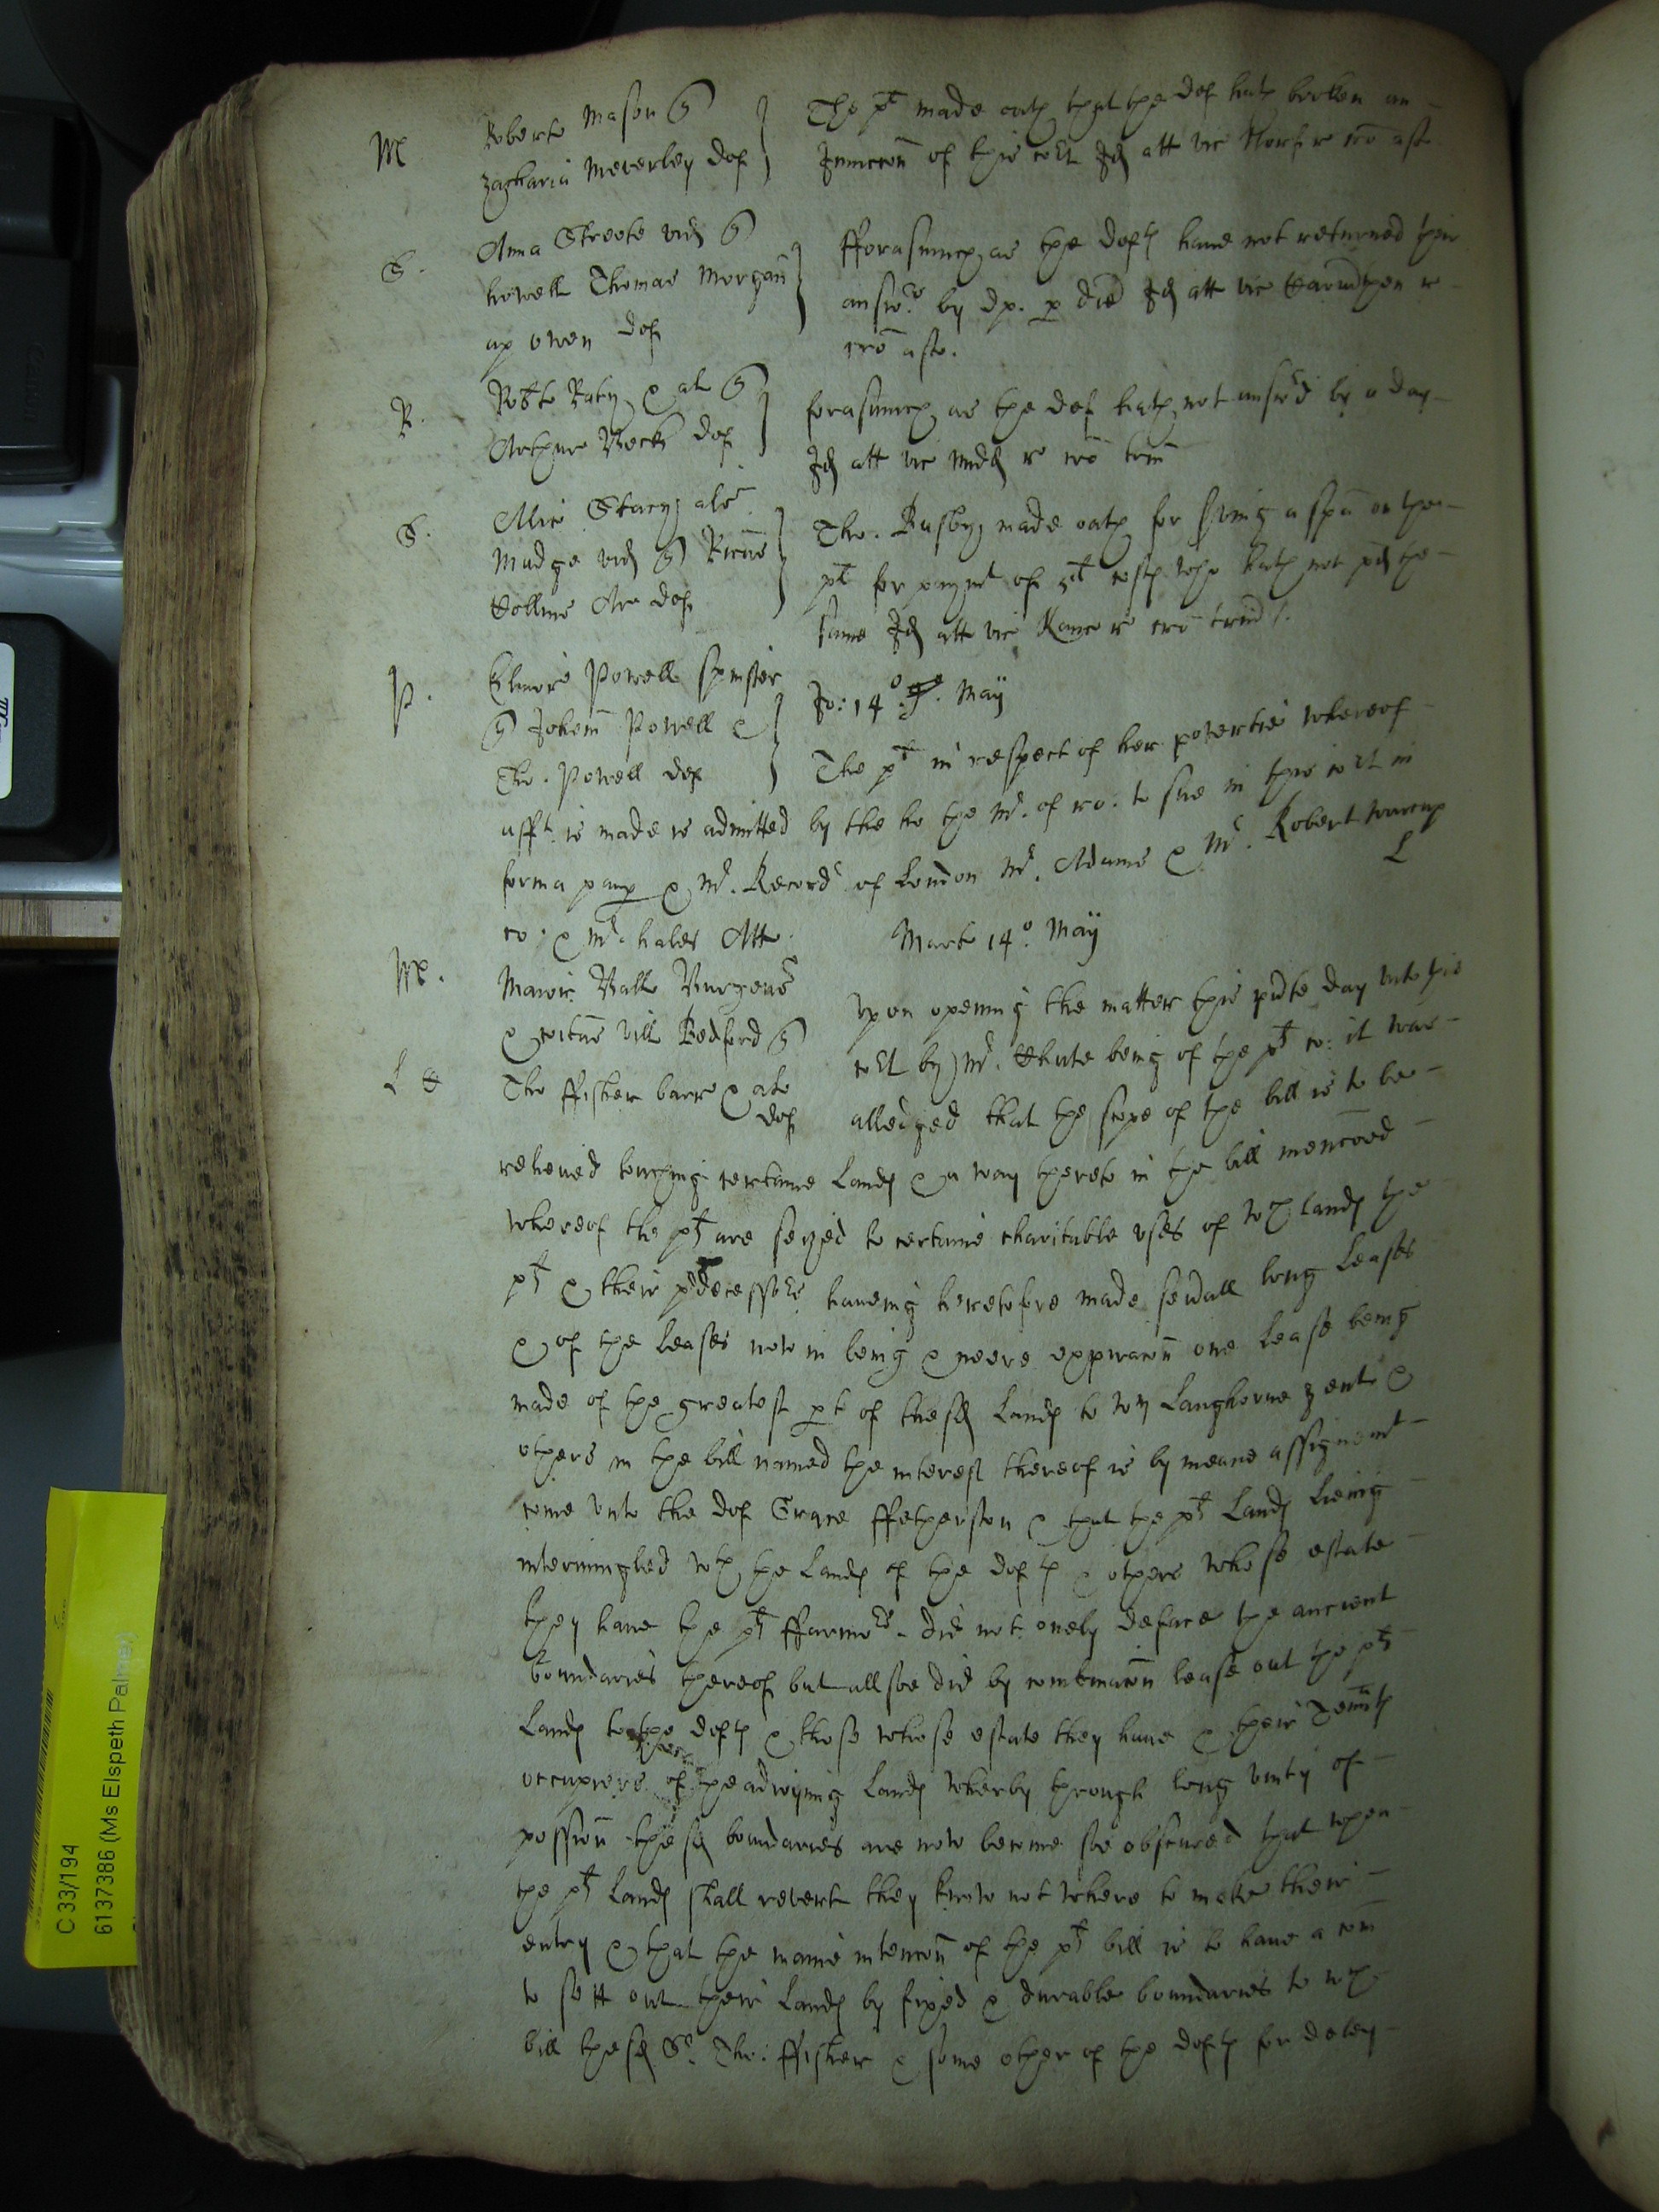 M
Roberto Mason q
Zacharia Meverley def
The plt made oath that the def hath broken an
Iniuccon of this cort Id att vic
S.
Anna Streete vid q
howell Thomas Morgan
ap owen def
fforasmuch as the defts have not returned their
answr by d p. Id att vic
cro aste.
R.
Robto Raby & al q
Arthure Beck def
forasmuch as the def hath not answrd by a day
Id att vic Midd r cro trin
S.
Alice Stacy als
Mudge vid q Ricus
Collins Ar def
Tho. Busby made oath for srving a spa on the
plt for paymt of costs who hath not pd the
same Id att vic r cro trind
P.
Elinore Powell spinster
q Johem Powell &
Tho. Powell def
Jo: 14o May
The plt in respect of her povertie whereof
afft is made is admitted by the ho the Mr. of ro. to sue in this cort in
forma paup & Mr. Recordr of London Mr. Adams & Mr. Robert
co. & Mr hales Att.
L
Mart 14o May
M.
Maior Ball Burgens
& coitas vill Bedford q
L
Tho ffisher barr & als
def
Vpon opening the matter this pnte day unto this
cort by Mr. being of the plts co: it was
alledged that the scope of the bill is to be
releived touching certaine Lands & a way thereto in the bill menconed
whereof the plts are seized to certaine charitable vses of wch lands the
plts & their pdecessors haveing heretofore made sevrall long Leases
& of the Leases now in being & neere expiracon one Lease being
made of the greatest pt of the sd Lands to Wm Langhorne gent &
others in the bill named the interest thereof is by meane assignemt
come unto the def Grace ffetherston & that the plts Lands lieing
intermingled wth the Lands of the defts & others whose estate
they have the plts ffarmors did not onely deface the ancient
boundaries thereof but allsoe did by combinacon lease out the plts
Lands to the defts & those whose estate they have & their Tenants
occupiers of the adioyning Lands wherby through long unity of
possion the sd boundaries are now become soe obscured that when
the plts Lands shall revert they know not where to make their
entry & that the maine intencon of the plts bill is to have a com
to sett out their Lands by fixed & durable boundaries to wch
bill the sd Sr. Tho: ffisher & some other of the defts for delay
C 33/194
6137386 (Ms Elspeth Palmer)
Canon